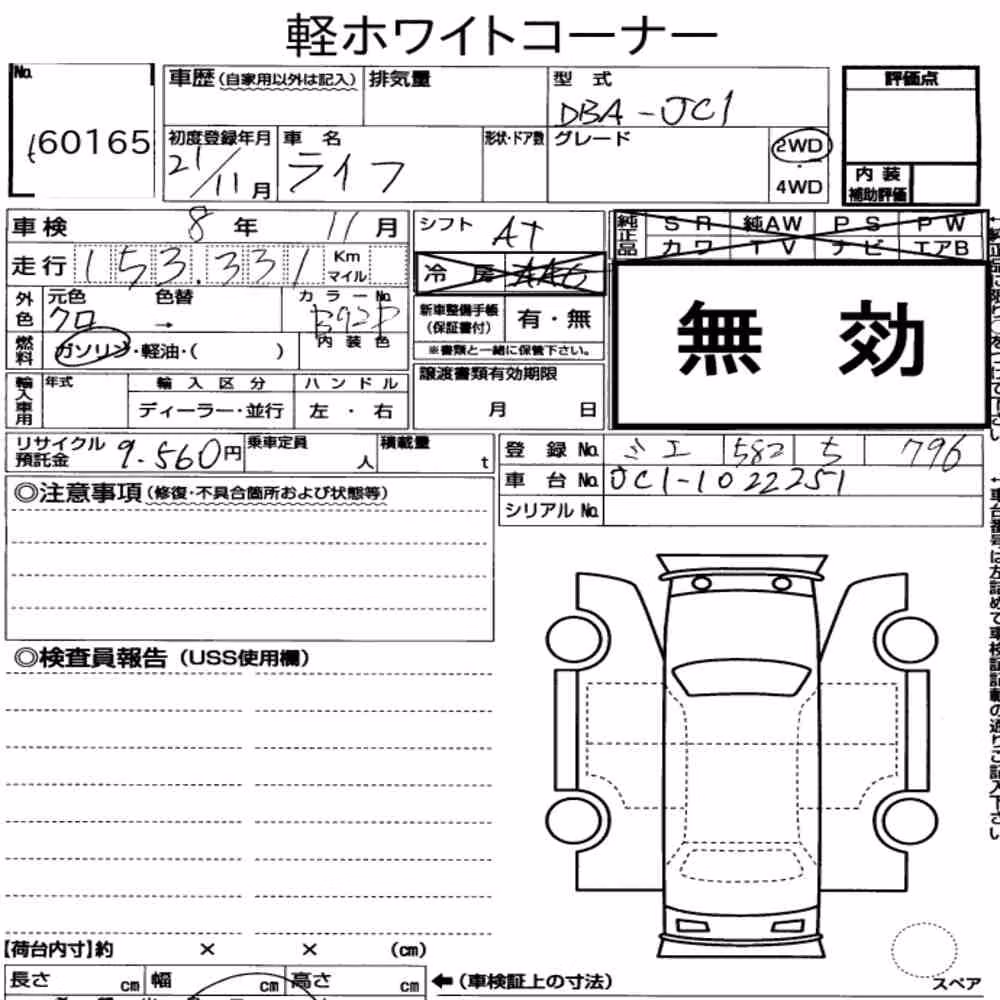 軽ホワイトコーナー
No.
60165
車歴(自家用以外は記入)
排気量
型 式
DBA-JC1
評価点
内 装
補助評価
初度登録年月
21/11月
車 名
ライフ
形状・ドア数
グレード
2WD
・
4WD
車検 8年 11月
走行 153,331 Km
マイル
外色
元色
クロ
色替
→
カラーNo.
B92P
内装色
燃料
ガソリン・軽油・( )
輸入車用
年式
輸入区分
ディーラー・並行
ハンドル
左・右
シフト AT
冷房 AAC
新車整備手帳
(保証書付)
有・無
※書類と一緒に保管下さい。
譲渡書類有効期限
月 日
純正品
SR 純AW PS PW
カワ TV ナビ エアB
無効
リサイクル
預託金
9.560円
乗車定員
人
積載量
t
登録No. ミエ 582 ち 796
車台No. JC1-1022251
シリアルNo.
◎注意事項(修復・不具合箇所および状態等)
◎検査員報告(USS使用欄)
【荷台内寸】約 × × (cm)
長さ cm 幅 cm 高さ cm
←(車検証上の寸法)
スペア
←車台番号は左詰めで車検証記載の通りご記入下さい